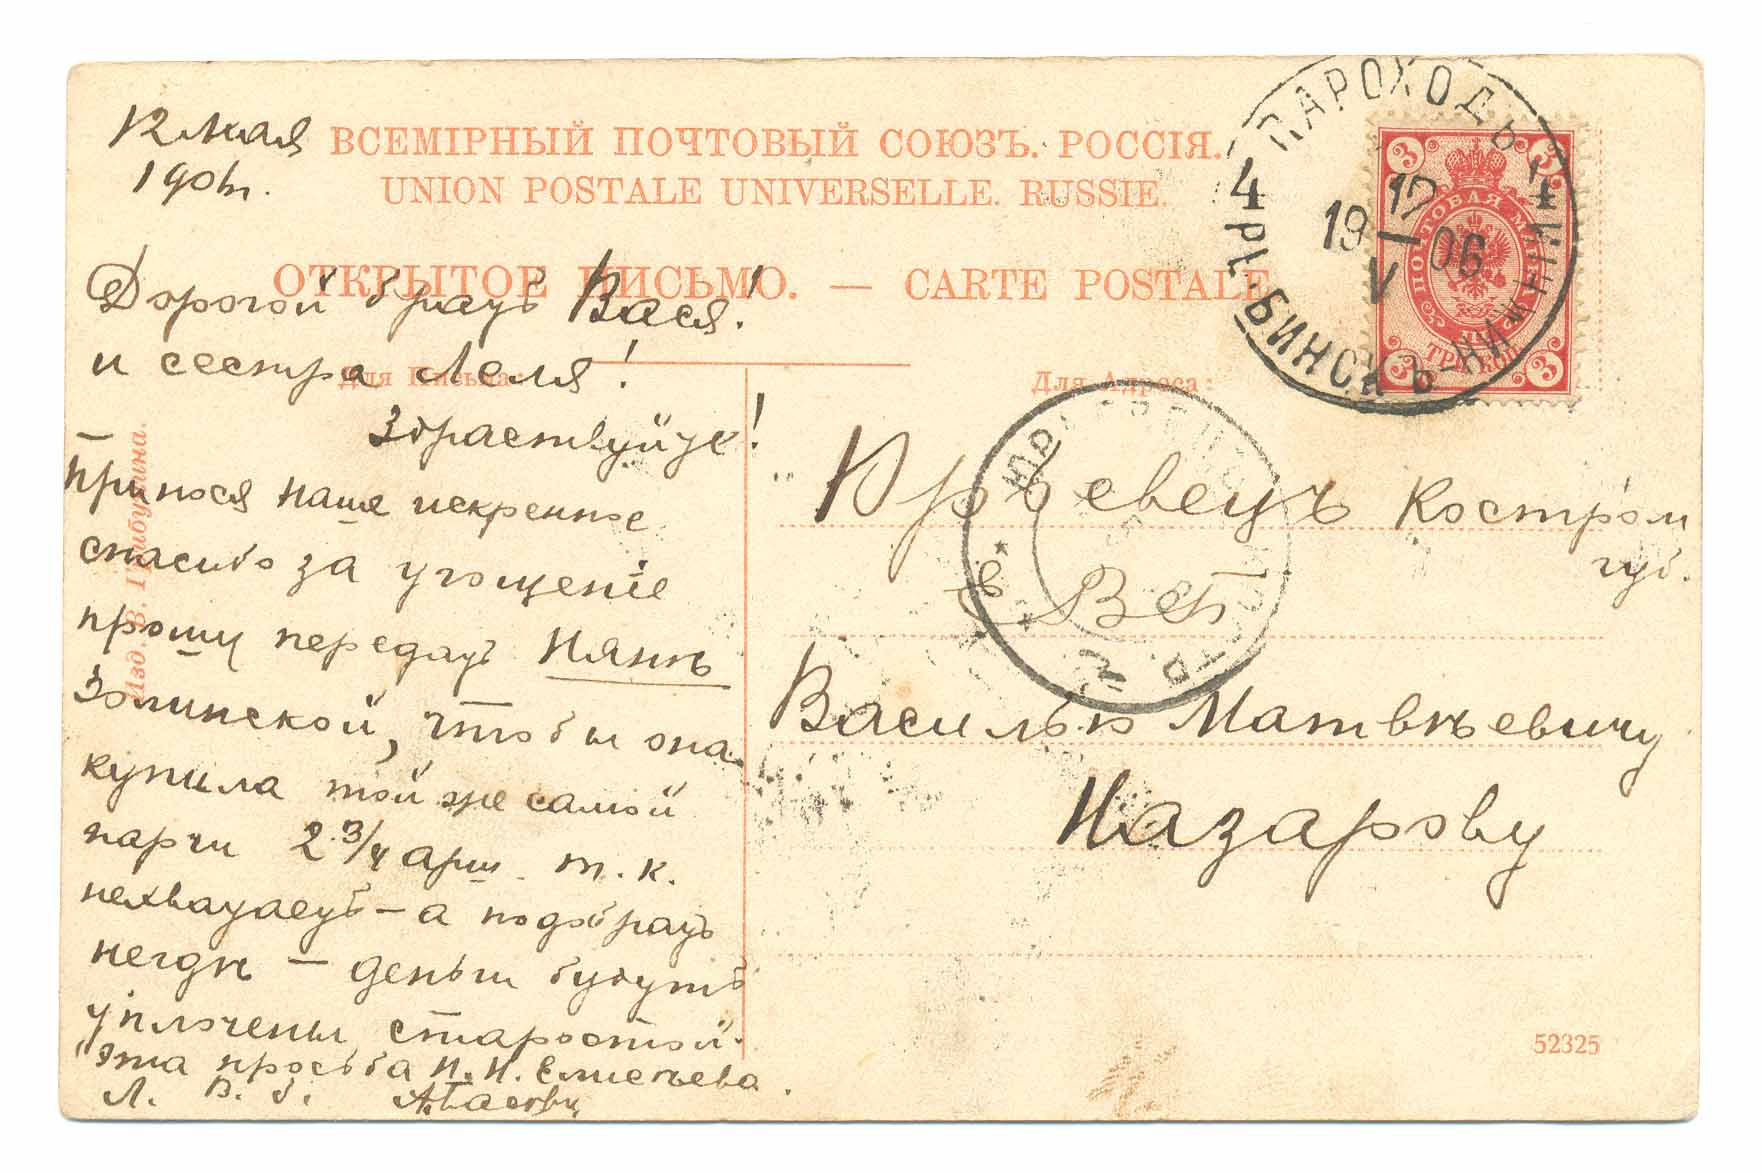 12 Мая
190 г.
ВСЕМІРНЫЙ ПОЧТОВЫЙ СОЮЗЪ. РОССІЯ.
UNION POSTALE UNIVERSELLE. RUSSIE.
ОТКРЫТОЕ ПИСЬМО. — CARTE POSTALE
Для Письма:
Для Адреса:
Дорогой братъ Вася!
и сестра Леля!
Здраствуйте!
Принося наше искреннее
спасибо за угощеніе
прошу передать Нянѣ
Золинской, чтобы она
купила той же самой
парчи 2 3/4 арш. т. к.
нехватаетъ – а подобрать
негдѣ – деньги будутъ
уплочены старостой.
Эта просьба Н. Н. Елисѣева.
Л. В. б.
Юрьевецъ Костром
губ.
ЕВБ
Василью Матвѣевичу
Назарову
Изд. В. Грибушина.
52325
ПАРОХОДЪ
4 4
19 12 06
V
РЫБИНСКЪ-НИЖНІЙ
3 3
ПОЧТОВАЯ МАРКА
ТРИ КОП.
3 3